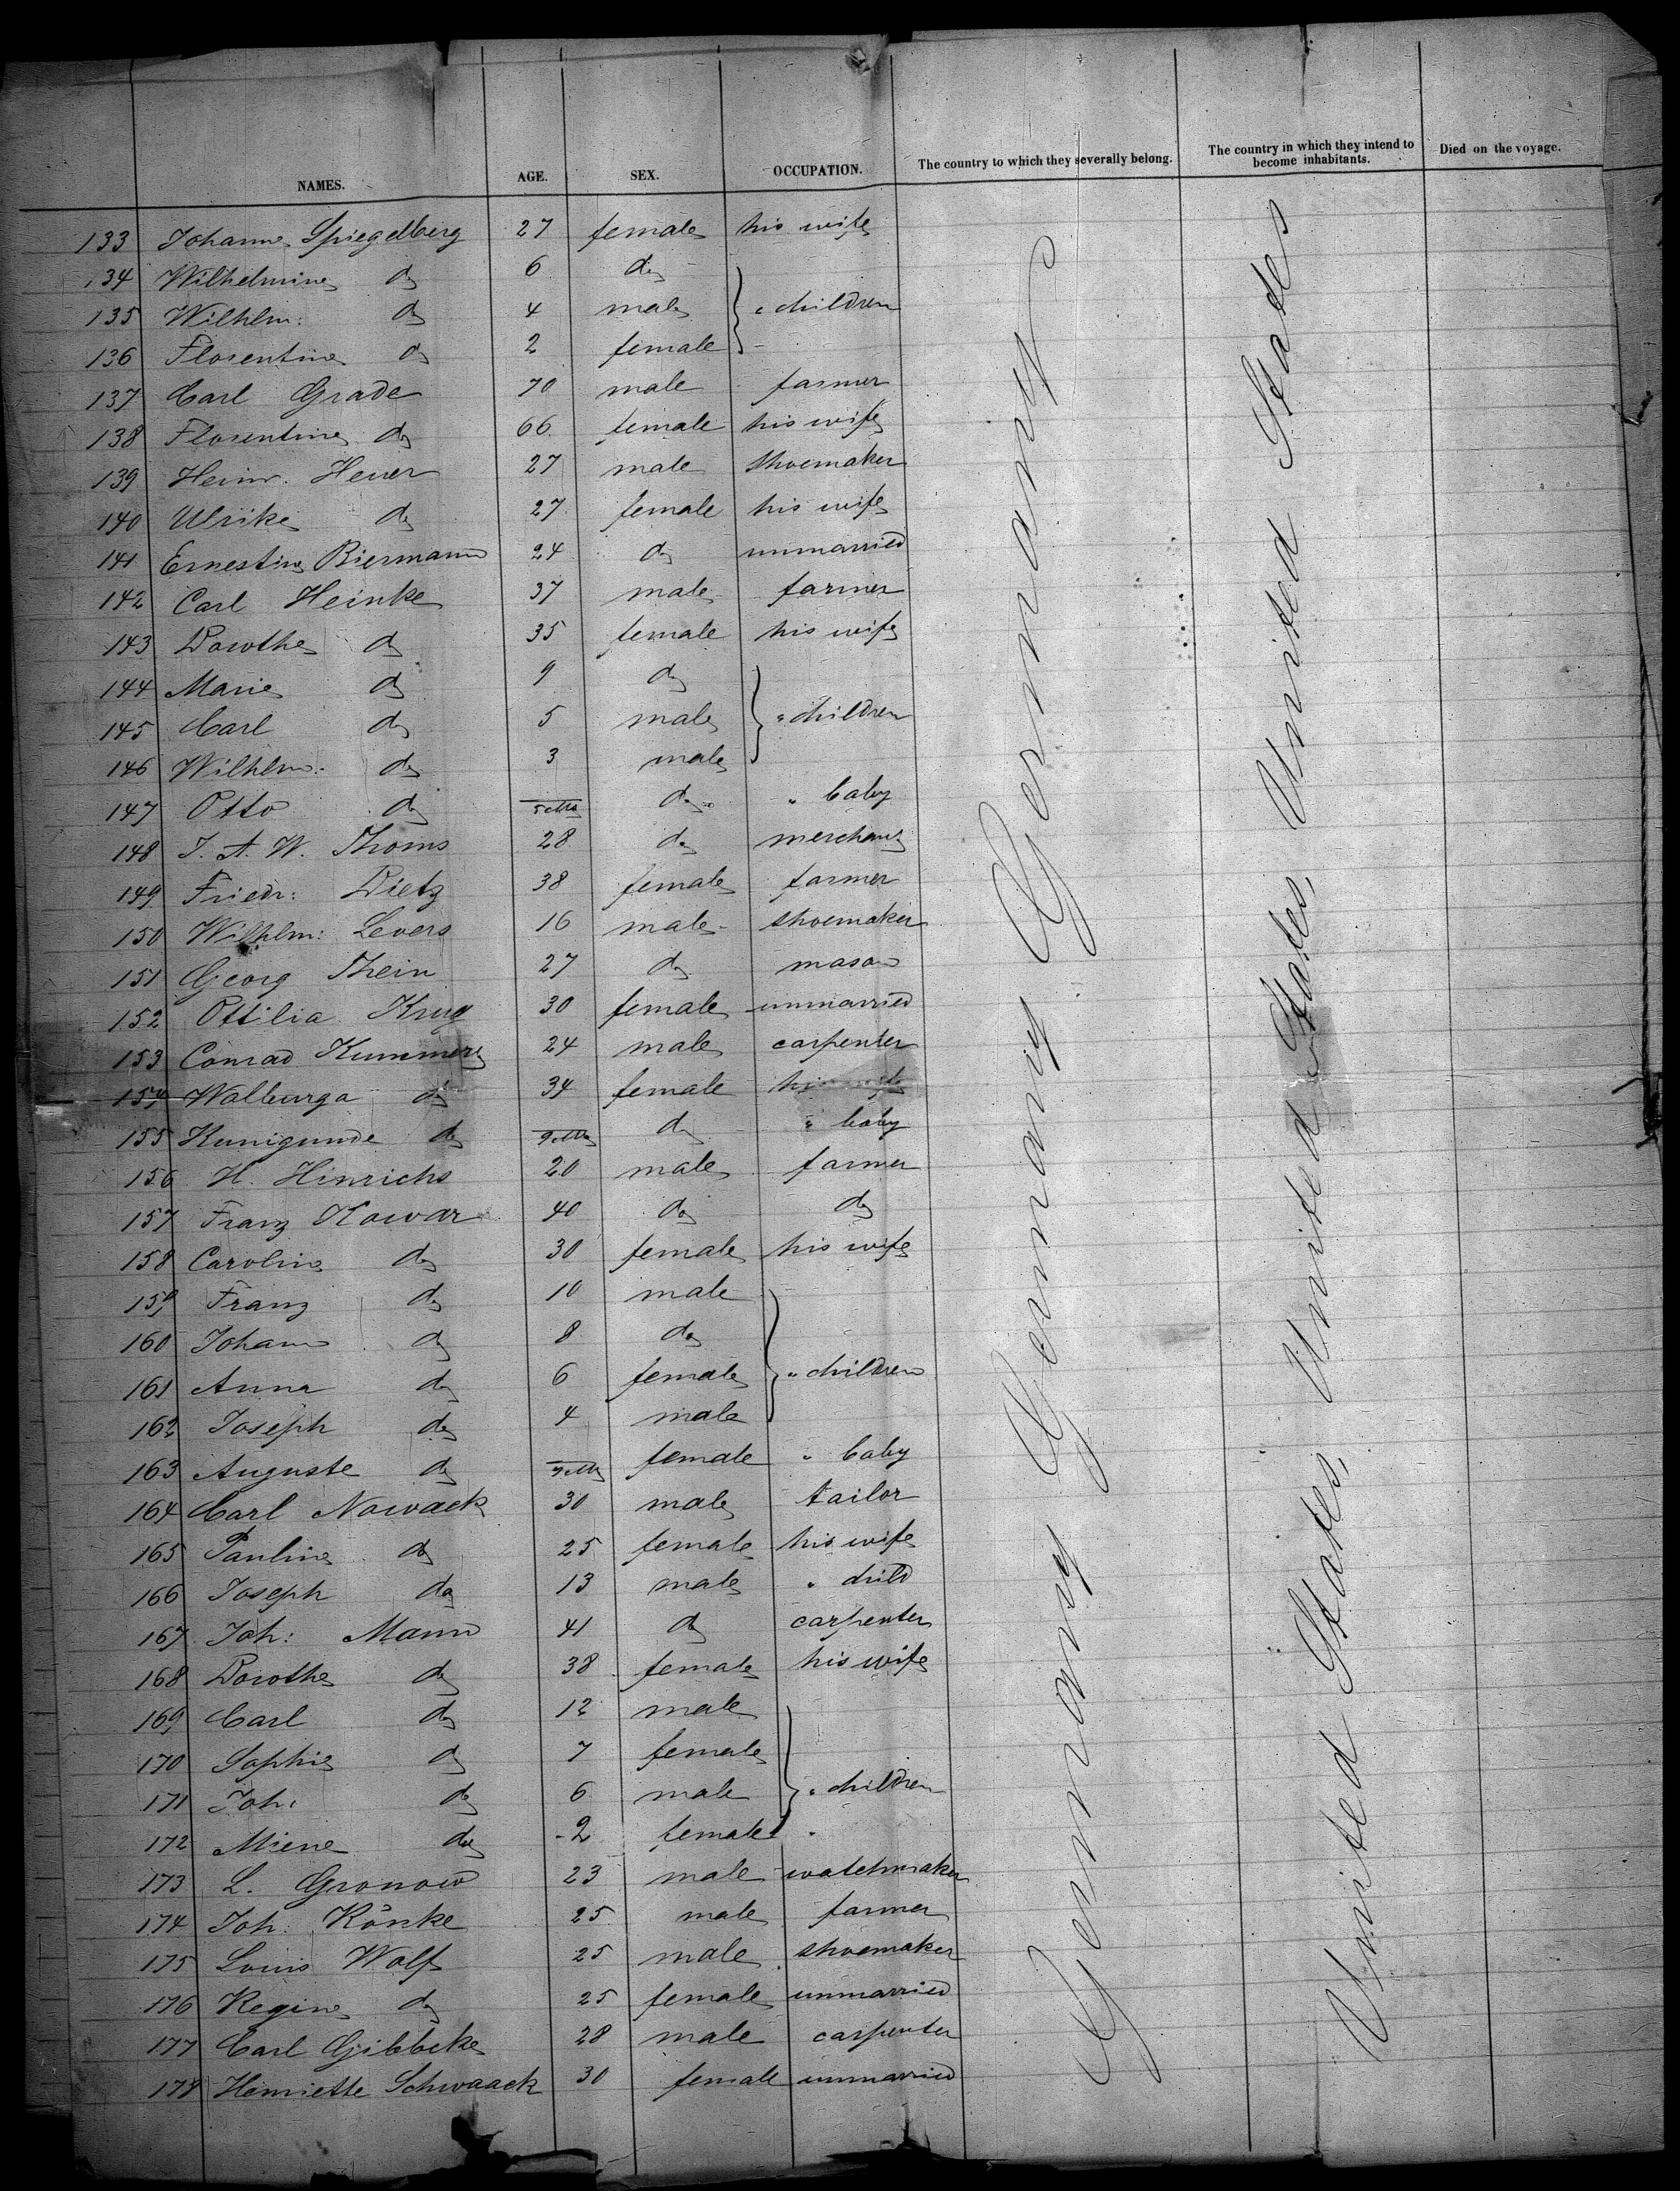 NAMES. AGE. SEX. OCCUPATION. The country to which they severally belong. The country in which they intend to become inhabitants. Died on the voyage.
133 Johanne Spiegelberg 27 female his wife
134 Wilhelmine do 6 do
135 Wilhlm: do 4 male " children
136 Florentine do 2 female
137 Carl Grade 70 male farmer
138 Florentine do 66 female his wife
139 Heinr. Heuer 27 male shoemaker
140 Ulrike do 27 female his wife
141 Ernestine Biermann 24 do unmarried
142 Carl Heinke 37 male farmer
143 Dorothe do 35 female his wife
144 Marie do 9 do
145 Carl do 5 male " children
146 Wilhlm: do 3 male
147 Otto do do " baby
148 J. A. W. Thoms 28 do merchant
149 Friedr: Dietz 38 female farmer
150 Wilhlm: Levers 16 male shoemaker
151 Georg Thein 27 do mason
152 Ottilia Krug 30 female unmarried
153 Conrad Kummer 24 male carpenter
154 Walburga do 34 female his wife
155 Kunigunde do do " baby
156 H. Hinrichs 20 male farmer
157 Franz Kowar 40 do do
158 Caroline do 30 female his wife
159 Franz do 10 male
160 Johann do 8 do
161 Anna do 6 female " children
162 Joseph do 4 male
163 Auguste do female " baby
164 Carl Nowack 30 male tailor
165 Pauline do 25 female his wife
166 Joseph do 13 male " child
167 Joh: Mann 41 do carpenter
168 Dorothe do 38 female his wife
169 Carl do 12 male
170 Sophie do 7 female
171 Joh: do 6 male " children
172 Miene do 2 female "
173 L. Gronow 23 male watchmaker
174 Joh. Könke 25 male farmer
175 Louis Wolf 25 male shoemaker
176 Regine do 25 female unmarried
177 Carl Gibbeke 28 male carpenter
178 Henriette Schwaack 30 female unmarried
Germany Germany Germany
United States, United States, United States